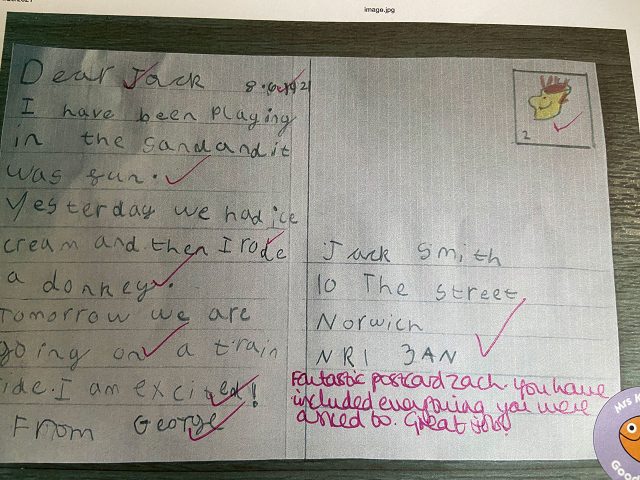 image.jpg
Dear Jack
I have been playing
in the sand and it
was fun.
Yesterday we had ice
cream and then I rode
a donkey.
Tomorrow we are
going on a train
ride. I am excited!
From George
2
Jack Smith
10 The street
Norwich
NR1 3AN
Fantastic postcard Zach. You have
included everything you were
asked to. Great job!
Mrs
Good